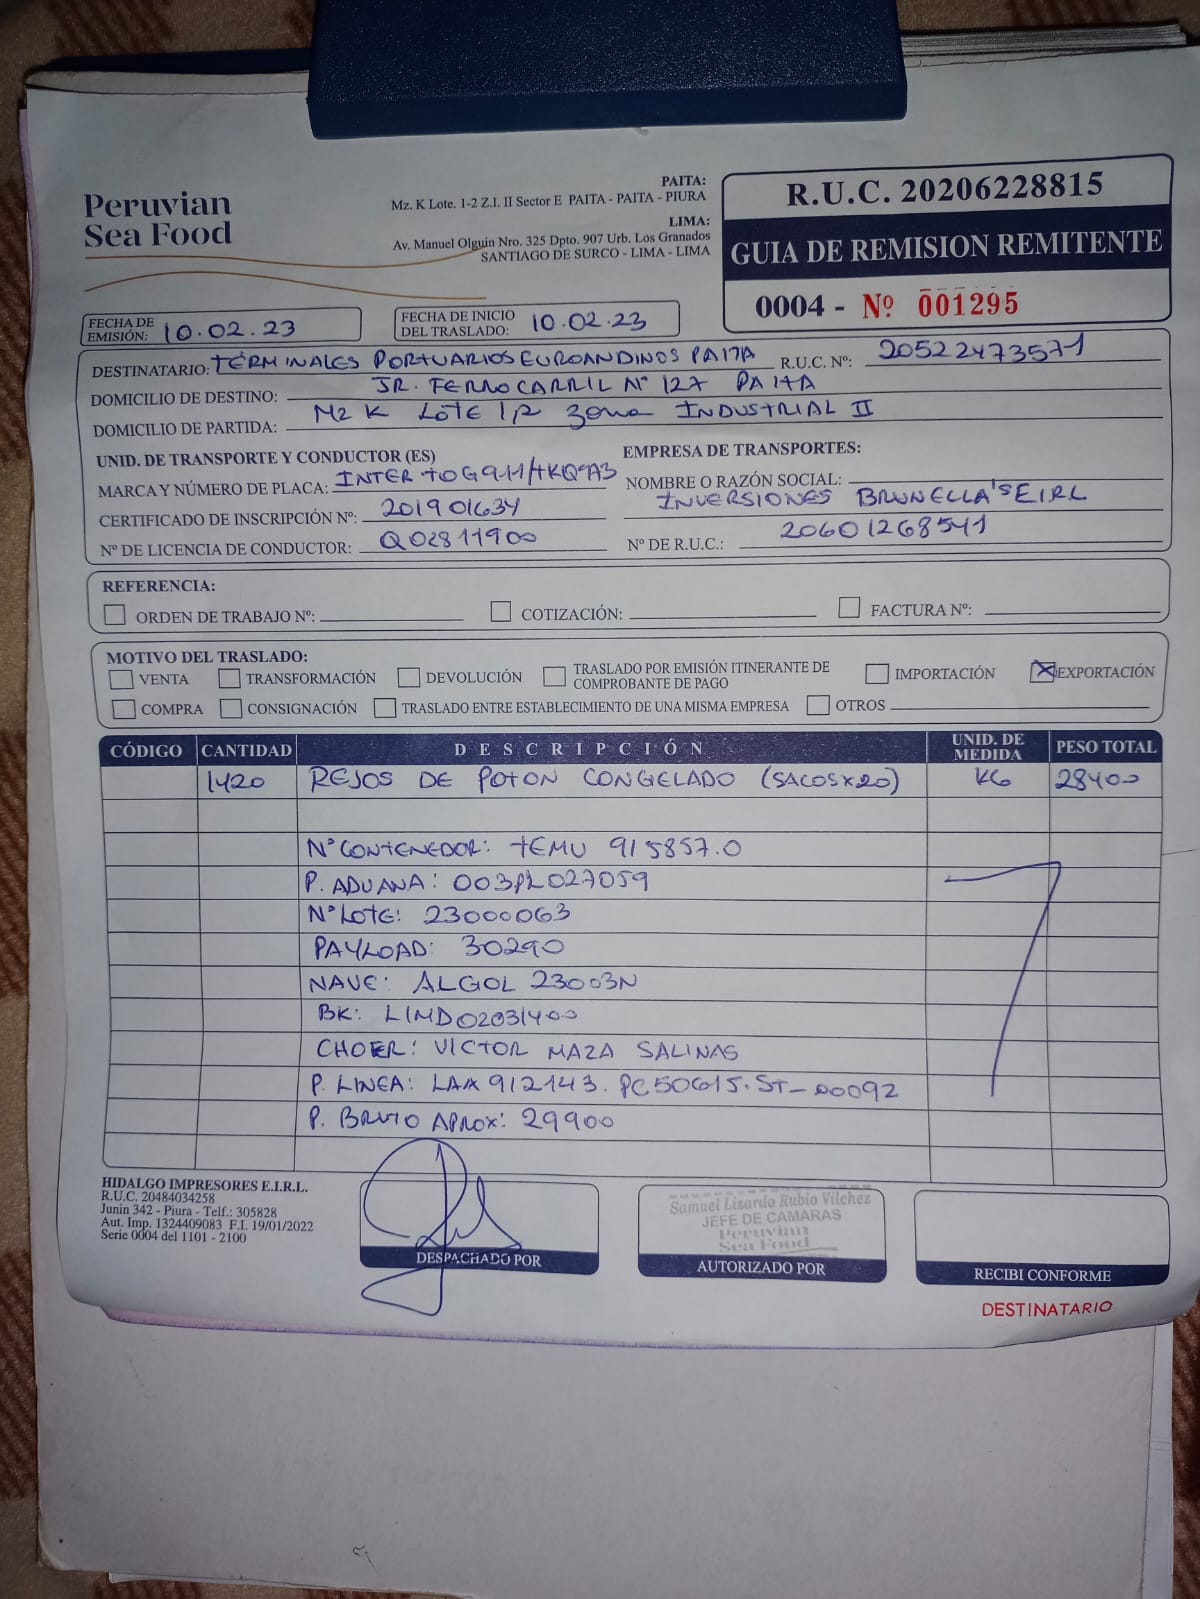 Peruvian
Sea Food
PAITA:
Mz. K Lote. 1-2 Z.I. II Sector E PAITA - PAITA - PIURA
LIMA:
Av. Manuel Olguin Nro. 325 Dpto. 907 Urb. Los Granados
SANTIAGO DE SURCO - LIMA - LIMA
R.U.C. 20206228815
GUIA DE REMISION REMITENTE
0004 - Nº 001295
FECHA DE EMISIÓN: 10.02.23
FECHA DE INICIO DEL TRASLADO: 10.02.23
DESTINATARIO: TERMINALES PORTUARIOS EUROANDINOS PAITA R.U.C. Nº: 20522473571
DOMICILIO DE DESTINO: JR. FERROCARRIL Nº 127 PAITA
DOMICILIO DE PARTIDA: MZ K LOTE 1,2 ZONA INDUSTRIAL II
UNID. DE TRANSPORTE Y CONDUCTOR (ES)
MARCA Y NÚMERO DE PLACA: INTER
CERTIFICADO DE INSCRIPCIÓN Nº: 201901634
Nº DE LICENCIA DE CONDUCTOR: Q02811900
EMPRESA DE TRANSPORTES:
NOMBRE O RAZÓN SOCIAL:
INVERSIONES BRUNELLA'S E.I.R.L
Nº DE R.U.C.: 20601268541
REFERENCIA:
ORDEN DE TRABAJO Nº: COTIZACIÓN: FACTURA Nº:
MOTIVO DEL TRASLADO:
VENTA TRANSFORMACIÓN DEVOLUCIÓN TRASLADO POR EMISIÓN ITINERANTE DE COMPROBANTE DE PAGO IMPORTACIÓN X EXPORTACIÓN
COMPRA CONSIGNACIÓN TRASLADO ENTRE ESTABLECIMIENTO DE UNA MISMA EMPRESA OTROS
CÓDIGO CANTIDAD DESCRIPCIÓN UNID. DE MEDIDA PESO TOTAL
1420 REJOS DE POTON CONGELADO (SACOSX20) KG 28400
Nº CONTENEDOR: TEMU 915857.0
P. ADUANA: 003PL027059
Nº LOTE: 23000063
PAYLOAD: 30290
NAVE: ALGOL 23003N
BK: LIMD02031400
CHOER: VICTOR MAZA SALINAS
P. LINEA: LAA912143. PC50615. ST-00092
P. BRUTO APROX: 29900
HIDALGO IMPRESORES E.I.R.L.
R.U.C. 20484034258
Junin 342 - Piura - Telf.: 305828
Aut. Imp. 1324409083 F.I. 19/01/2022
Serie 0004 del 1101 - 2100
DESPACHADO POR
Samuel Lizardo Rubio Vilchez
JEFE DE CAMARAS
Peruvian
Sea Food
AUTORIZADO POR
RECIBI CONFORME
DESTINATARIO